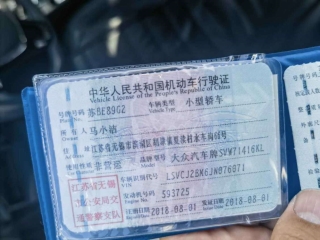 中华人民共和国机动车行驶证
Vehicle License of the People's Republic of China
号牌号码 苏BE89G2 车辆类型 小型轿车
所有人 马小洁
住址 江苏省无锡市滨湖区胡埭镇
使用性质 非营运 品牌型号 大众汽车牌SVW71416KL
江苏省无锡市公安局交通警察支队
车辆识别代号
发动机号码 S93725
注册日期 2018-08-01 发证日期 2018-08-01